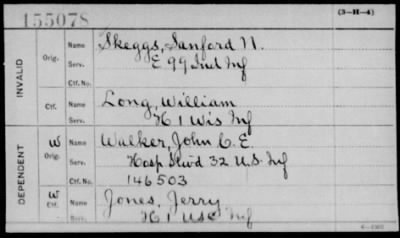 155078
(3-H-4)
INVALID
Orig.
Name Skeggs, Sanford N.
Serv. E 99 Ind Inf
Ctf. No.
Ctf.
Name Long, William
Serv. H 1 Wis Inf
DEPENDENT
W
Orig.
Name Walker, John C. E.
Serv. Hosp Stwd 32 U.S. Inf
Ctf. No. 146503
W
Ctf.
Name Jones, Jerry
Serv. H 1 USC Inf